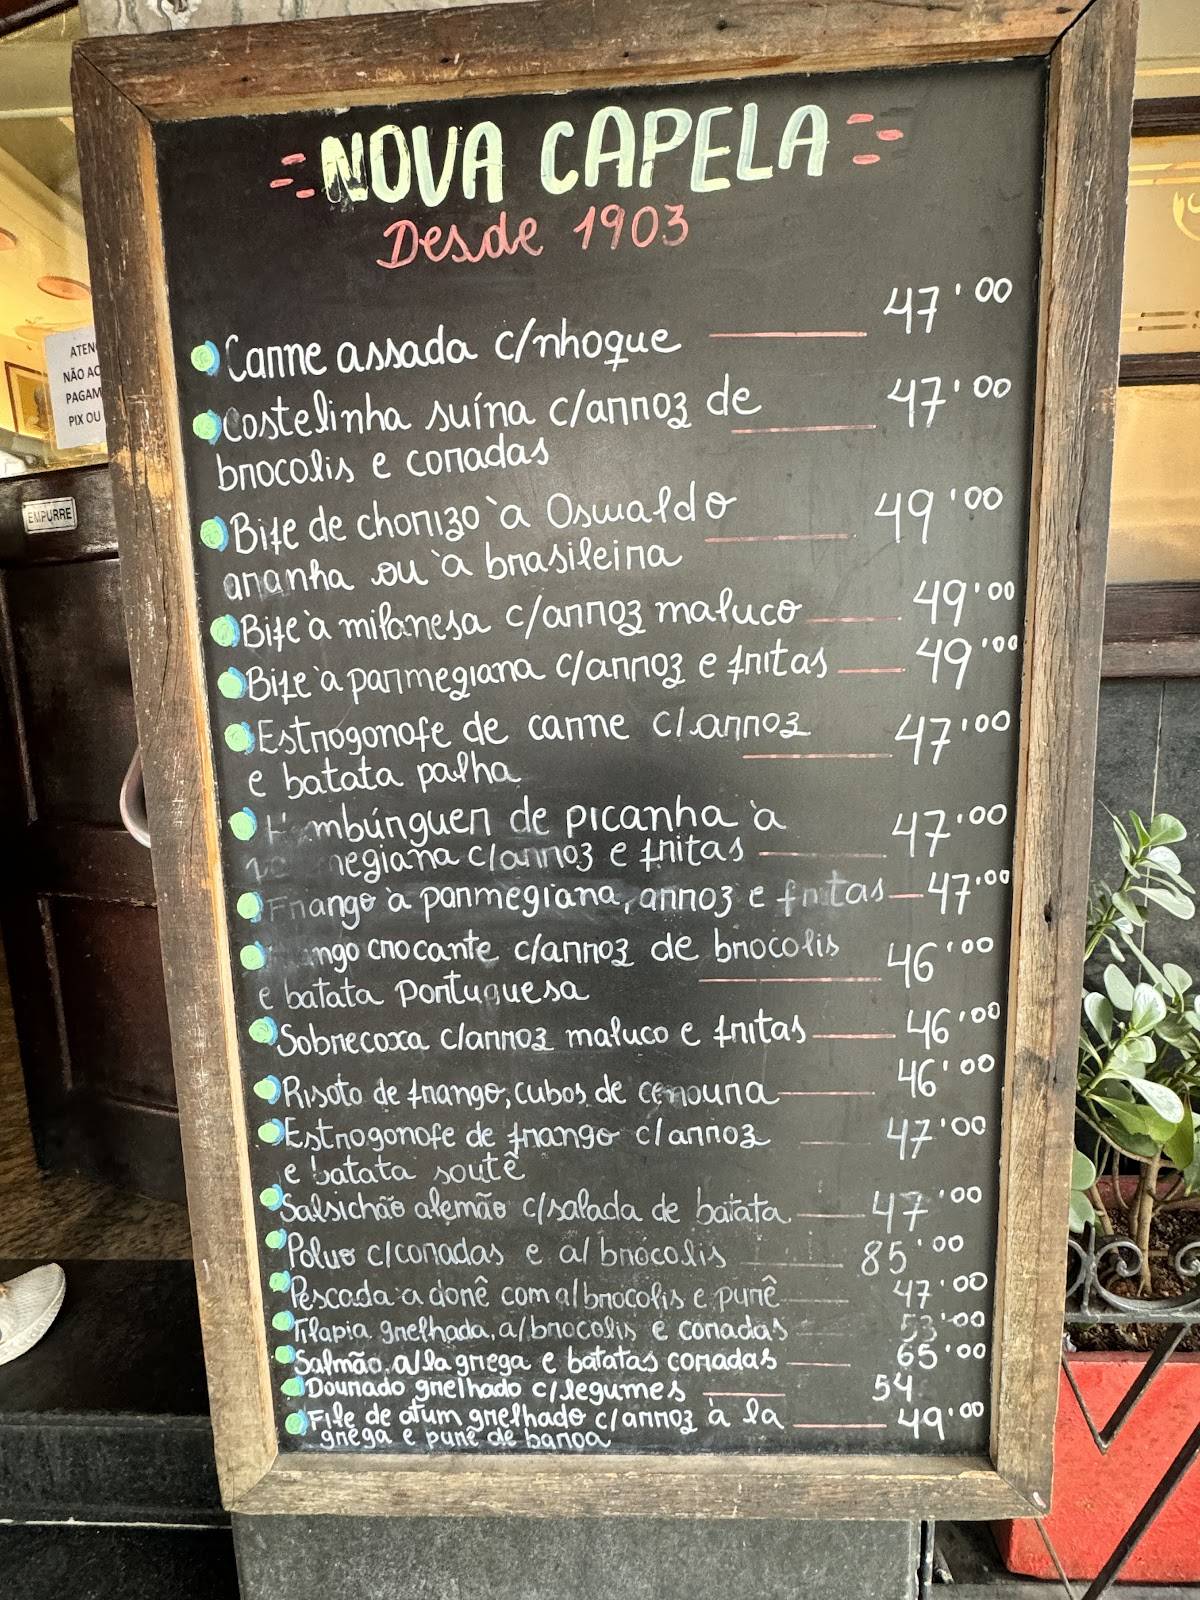 NOVA CAPELA
Desde 1903
Carne assada c/nhoque 47'00
Costelinha suína c/arroz de 47'00
brocolis e coradas
Bife de chorizo à Oswaldo 49'00
aranha ou à brasileira
Bife à milanesa c/arroz maluco 49'00
Bife à parmegiana c/arroz e fritas 49'00
Estrogonofe de carne c/arroz 47'00
e batata palha
mbúrguer de picanha à 47'00
megiana c/arroz e fritas
Frango à parmegiana, arroz e fritas 47'00
ngo crocante c/arroz de brocolis 46'00
e batata portuguesa
Sobrecoxa c/arroz maluco e fritas 46'00
Risoto de frango, cubos de cenoura 46'00
Estrogonofe de frango c/arroz 47'00
e batata soutê
Salsichão alemão c/salada de batata 47'00
Polvo c/coradas e a/brócolis 85'00
Pescada a dorê com a/brocolis e purê 47'00
Tilapia grelhada, a/brocolis e coradas 53'00
Salmão, a/la grega e batatas coradas 65'00
Dourado grelhado c/legumes 54
File de atum grelhado c/arroz à la 49'00
grega e purê de baroa
ATEN
NÃO AC
PAGAM
PIX OU
EMPURRE